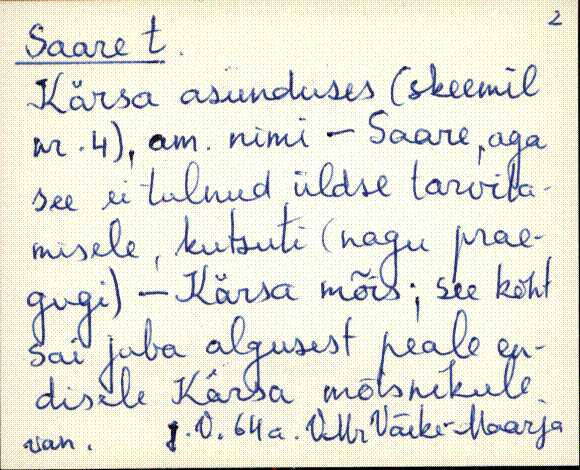 2
Saare t.
Kärsa asunduses (skeemil
nr. 4), am. nimi - Saare, aga
see ei tulnud üldse tarvita-
misele, kutsuti (nagu prae-
gugi) - Kärsa mõis; see koht
sai juba algusest peale en-
disele Kärsa mõisnikule.
van. J.V. 64 a. V.Mr Väike-Maarja